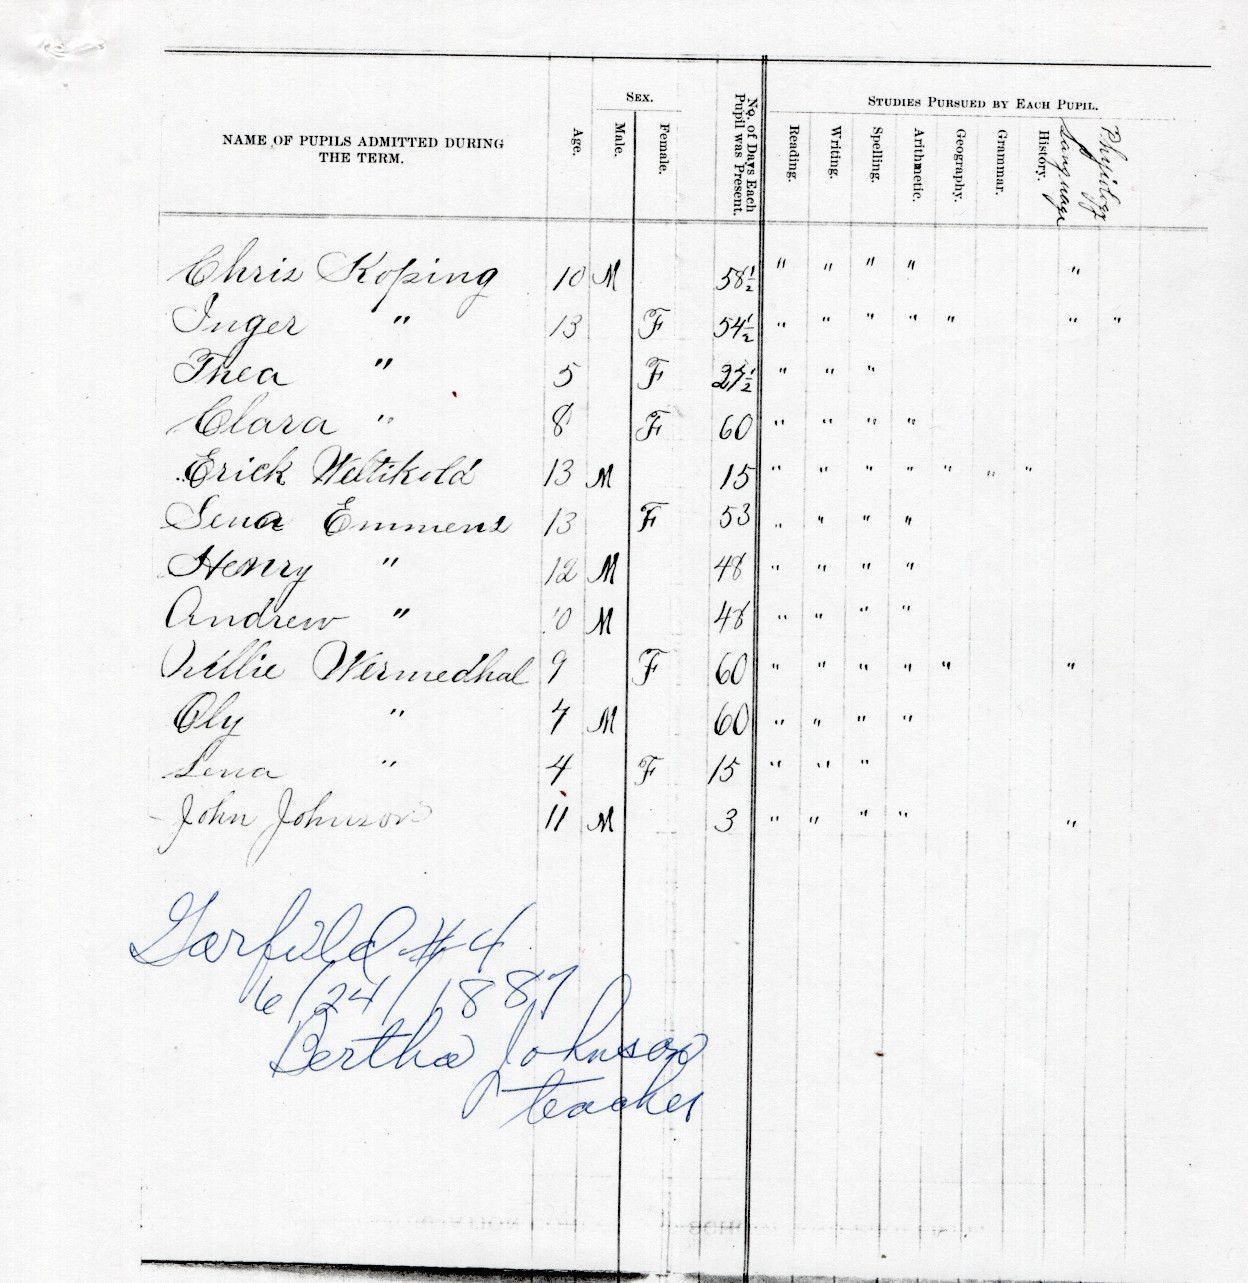 SEX.
STUDIES PURSUED BY EACH PUPIL.
NAME OF PUPILS ADMITTED DURING
THE TERM.
Age.
Male.
Female.
No. of Days Each
Pupil was Present.
Reading.
Writing.
Spelling.
Arithmetic.
Geography.
Grammar.
History.
Language
Physiology
Chris Koping 10 M 58½ " " " " "
Inger " 13 F 54½ " " " " " " "
Thea " 5 F 27½ " " "
Clara " 8 F 60 " " " "
Erick Weltikold 13 M 15 " " " " " " "
Lena Emmens 13 F 53 " " " "
Henry " 12 M 48 " " " "
Andrew " 10 M 48 " " " "
Millie Wermedhal 9 F 60 " " " " " "
Oly " 7 M 60 " " " "
Lena " 4 F 15 " " "
John Johnson 11 M 3 " " " " "
Garfield #4
6/24/1887
Bertha Johnson
teacher